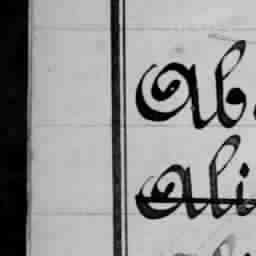 Ab
Ali